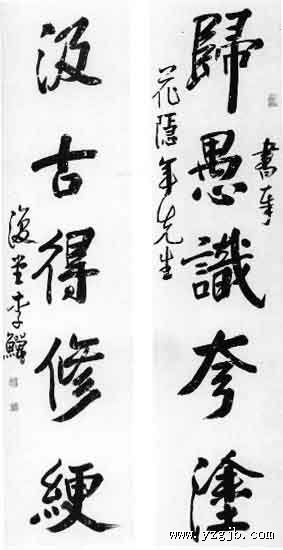 歸愚識夸塗
書奉
花隱年先生
汲古得修綆
復堂李鱓
www.yzgjb.com